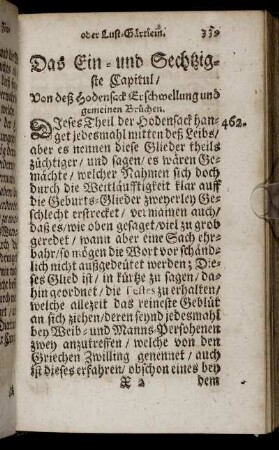 oder Lust-Gärtlein. 339
Das Ein- und Sechtzig-
ste Capitul /
Von deß Hodensack Erschwellung und
gemeinen Brüchen.
DIeses Theil der Hodensack han- 462.
get jedesmahl mitten deß Leibs /
aber es nennen diese Glieder theils
züchtiger / und sagen / es wären Ge-
mächte / welcher Nahmen sich doch
durch die Weitläufftigkeit klar auff
die Geburts-Glieder zweyerley Ge-
schlecht erstrecket / vermainen auch /
daß es / wie oben gesaget / viel zu grob
geredet / wann aber eine Sach ehr-
bahr / so mögen die Wort vor schänd-
lich nicht außgedeutet werden; Die-
ses Glied ist / in kürtze zu sagen / da-
hin geordnet / die Testes zu erhalten /
welche allezeit das reineste Geblüt
an sich ziehen / deren seynd jedesmahl
bey Weib- und Manns-Persohenen
zwey anzutreffen / welche von den
Griechen Zwilling genennet / auch
ist dieses erfahren / obschon eines bey
X 2 dem